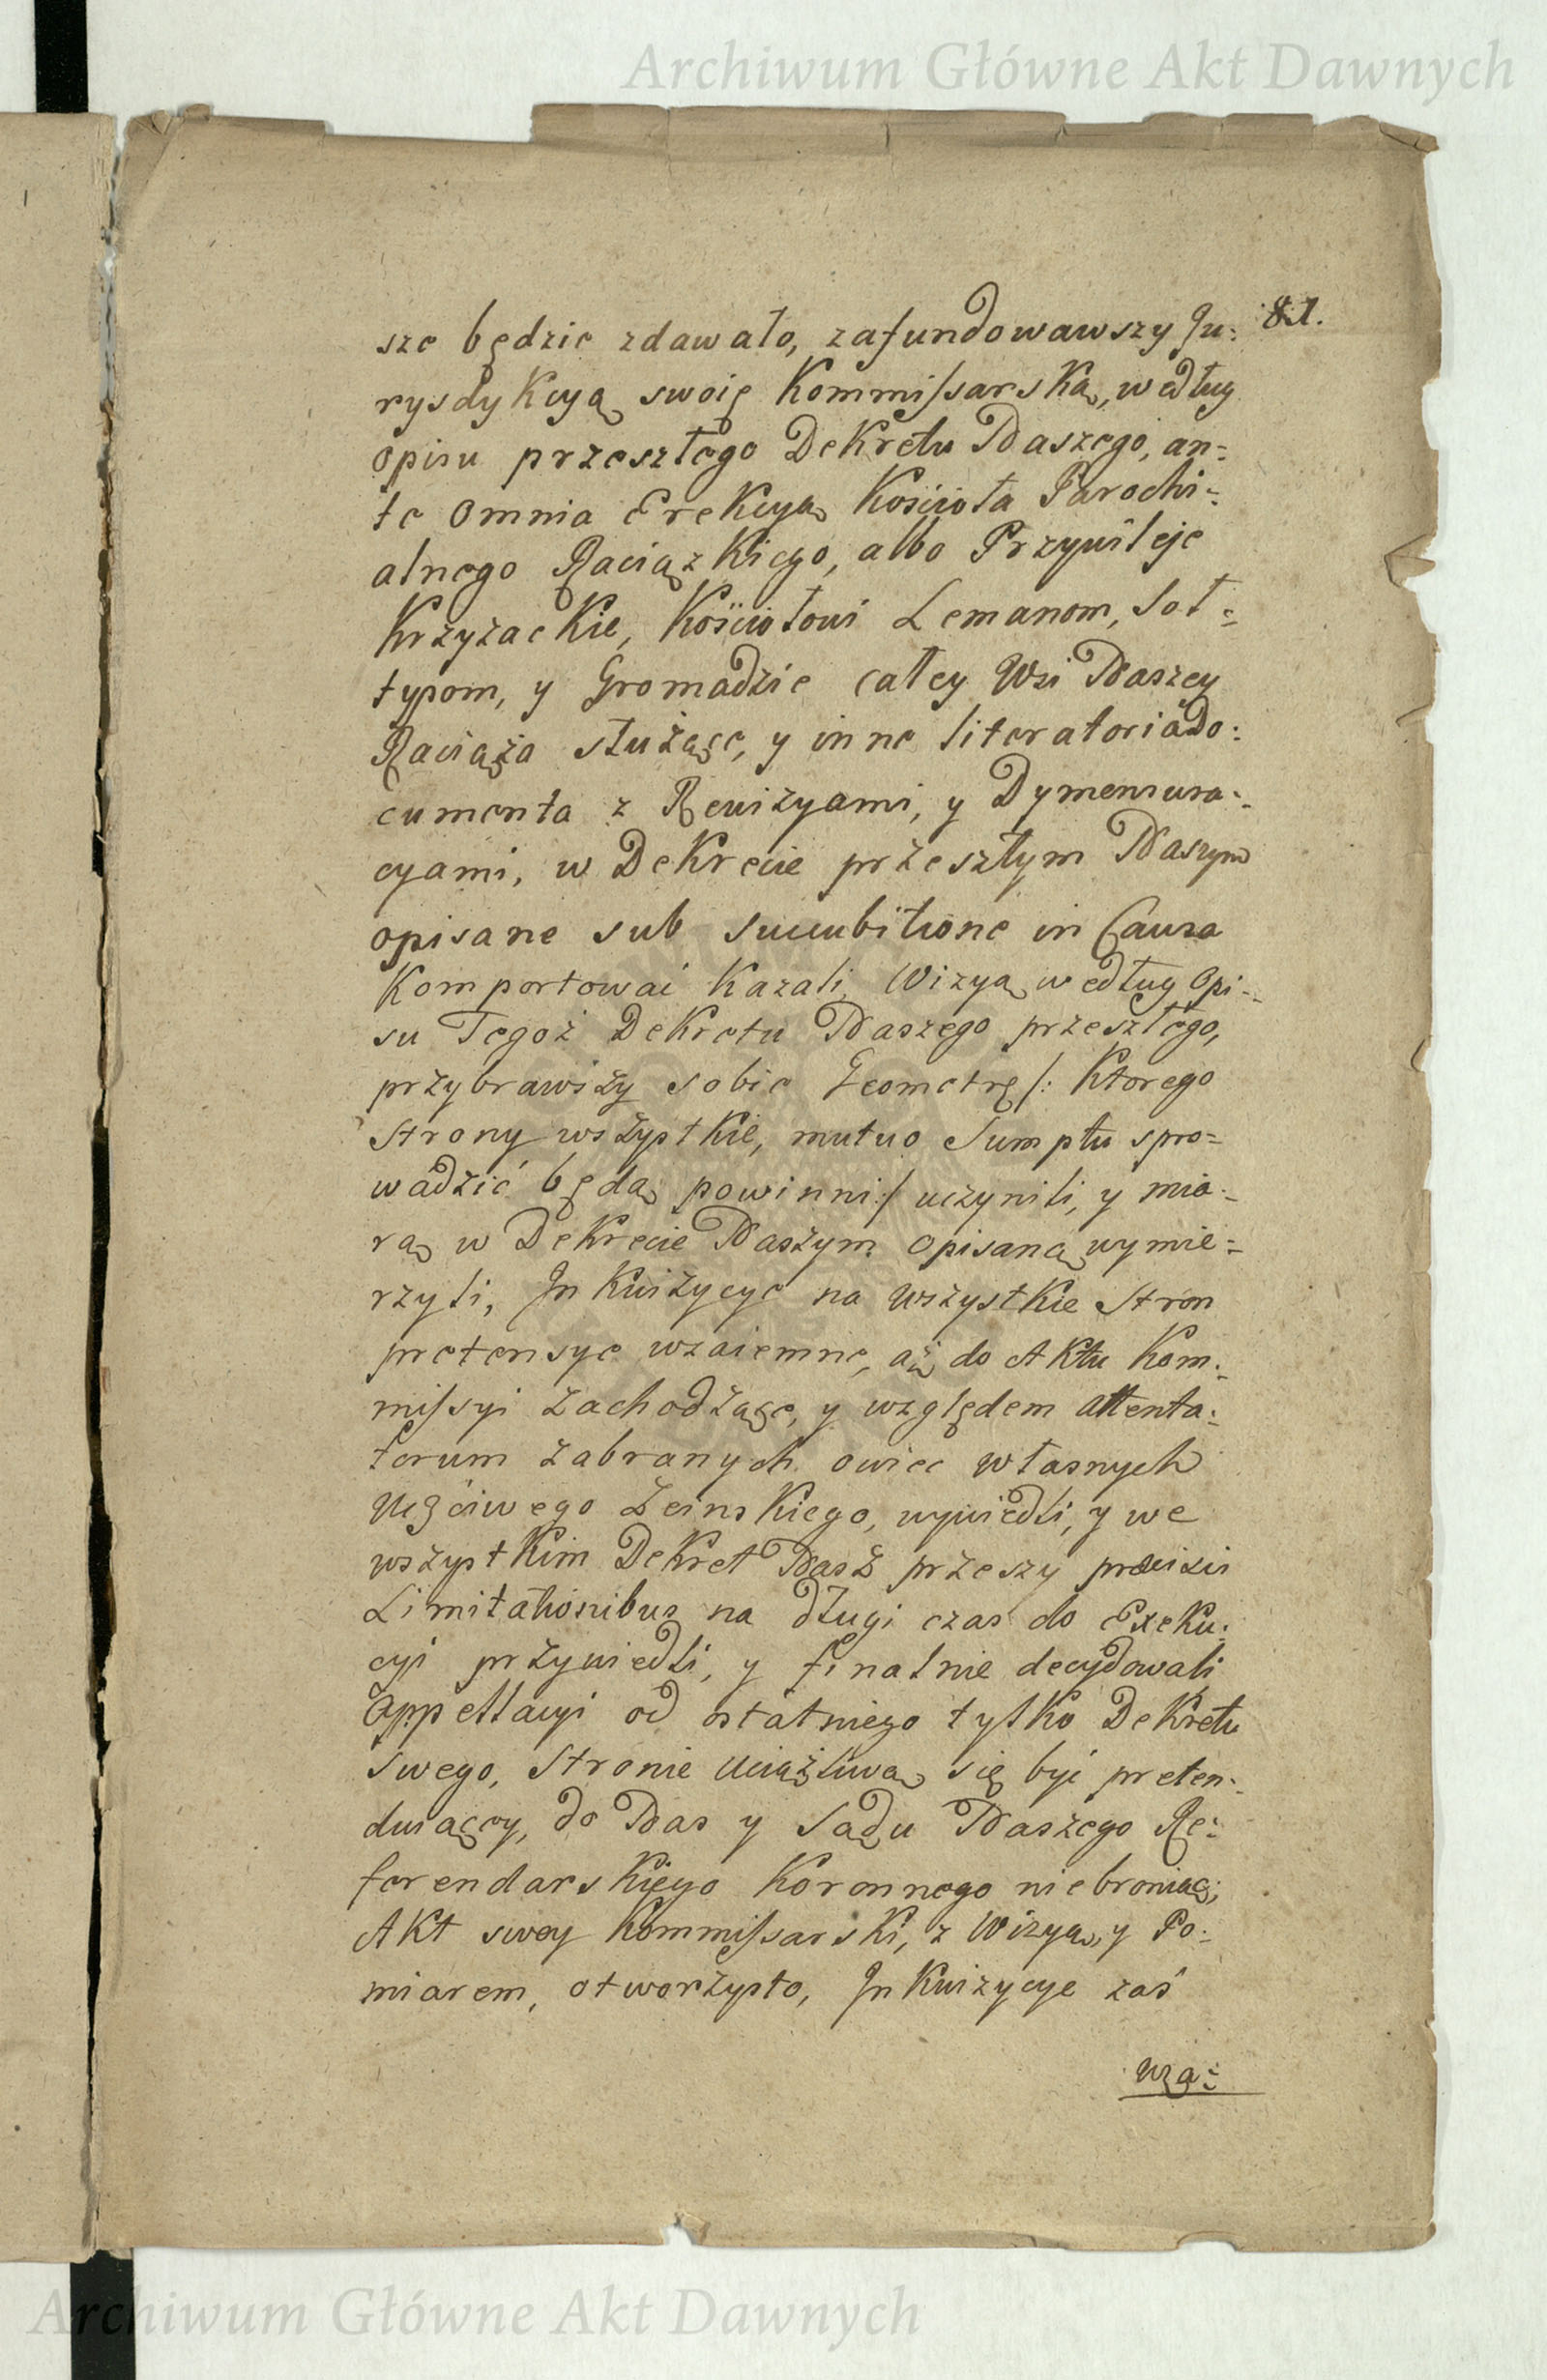 Archiwum Główne Akt Dawnych
81.
sze będzie zdawało, zafundowawszy Ju:
rysdykcyą swoię Kommissarską, według
opisu przeszłego Dekretu Naszego, an=
te omnia Erekcyą Kościoła Parochi=
alnego Raciązkiego, albo Przywileje
Krzyżackie, Kościołowi Lemanom, Soł=
tysom, y Gromadzie całey Wsi Naszey
Raciąża służące, y inne literatoria do:
cumenta z Rewizyami, y Dymensura=
cyami, w Dekrecie przeszłym Naszym
opisane sub succubitione in Causa
Komportować kazali, Wizyą według Opi=
su Tegoż Dekretu Naszego przeszłego,
przybrawszy sobie Geometrę /: Ktorego
Strony wszystkie, mutuo Sumptu spro=
wadzić będą powinni :/ uczynili, y mia=
rą w Dekrecie Naszym opisaną wymie=
rzyli, Inkwizycye na wszystkie Stron
pretensye wzaiemne, aż do Aktu Kom=
missyi zachodzące, y względem attenta:
torum zabranych owiec własnych
Uczciwego Zeinskiego, wywiedli, y we
wszystkim Dekret Nasz przeszy præcisis
Limitationibus na długi czas do Exeku:
cyi przywiedli, y finalnie decydowali
Appellacyi od ostatniego tylko Dekretu
Swego, Stronie uciążliwą się być preten:
duiącey, do Nas y Sądu Naszego Re:
ferendarskiego Koronnego niebroniąc;
Akt swoy Kommissarski, z Wizyą, y Po:
miarem, otworzysto, Inkwizycye zaś
wza=
Archiwum Główne Akt Dawnych